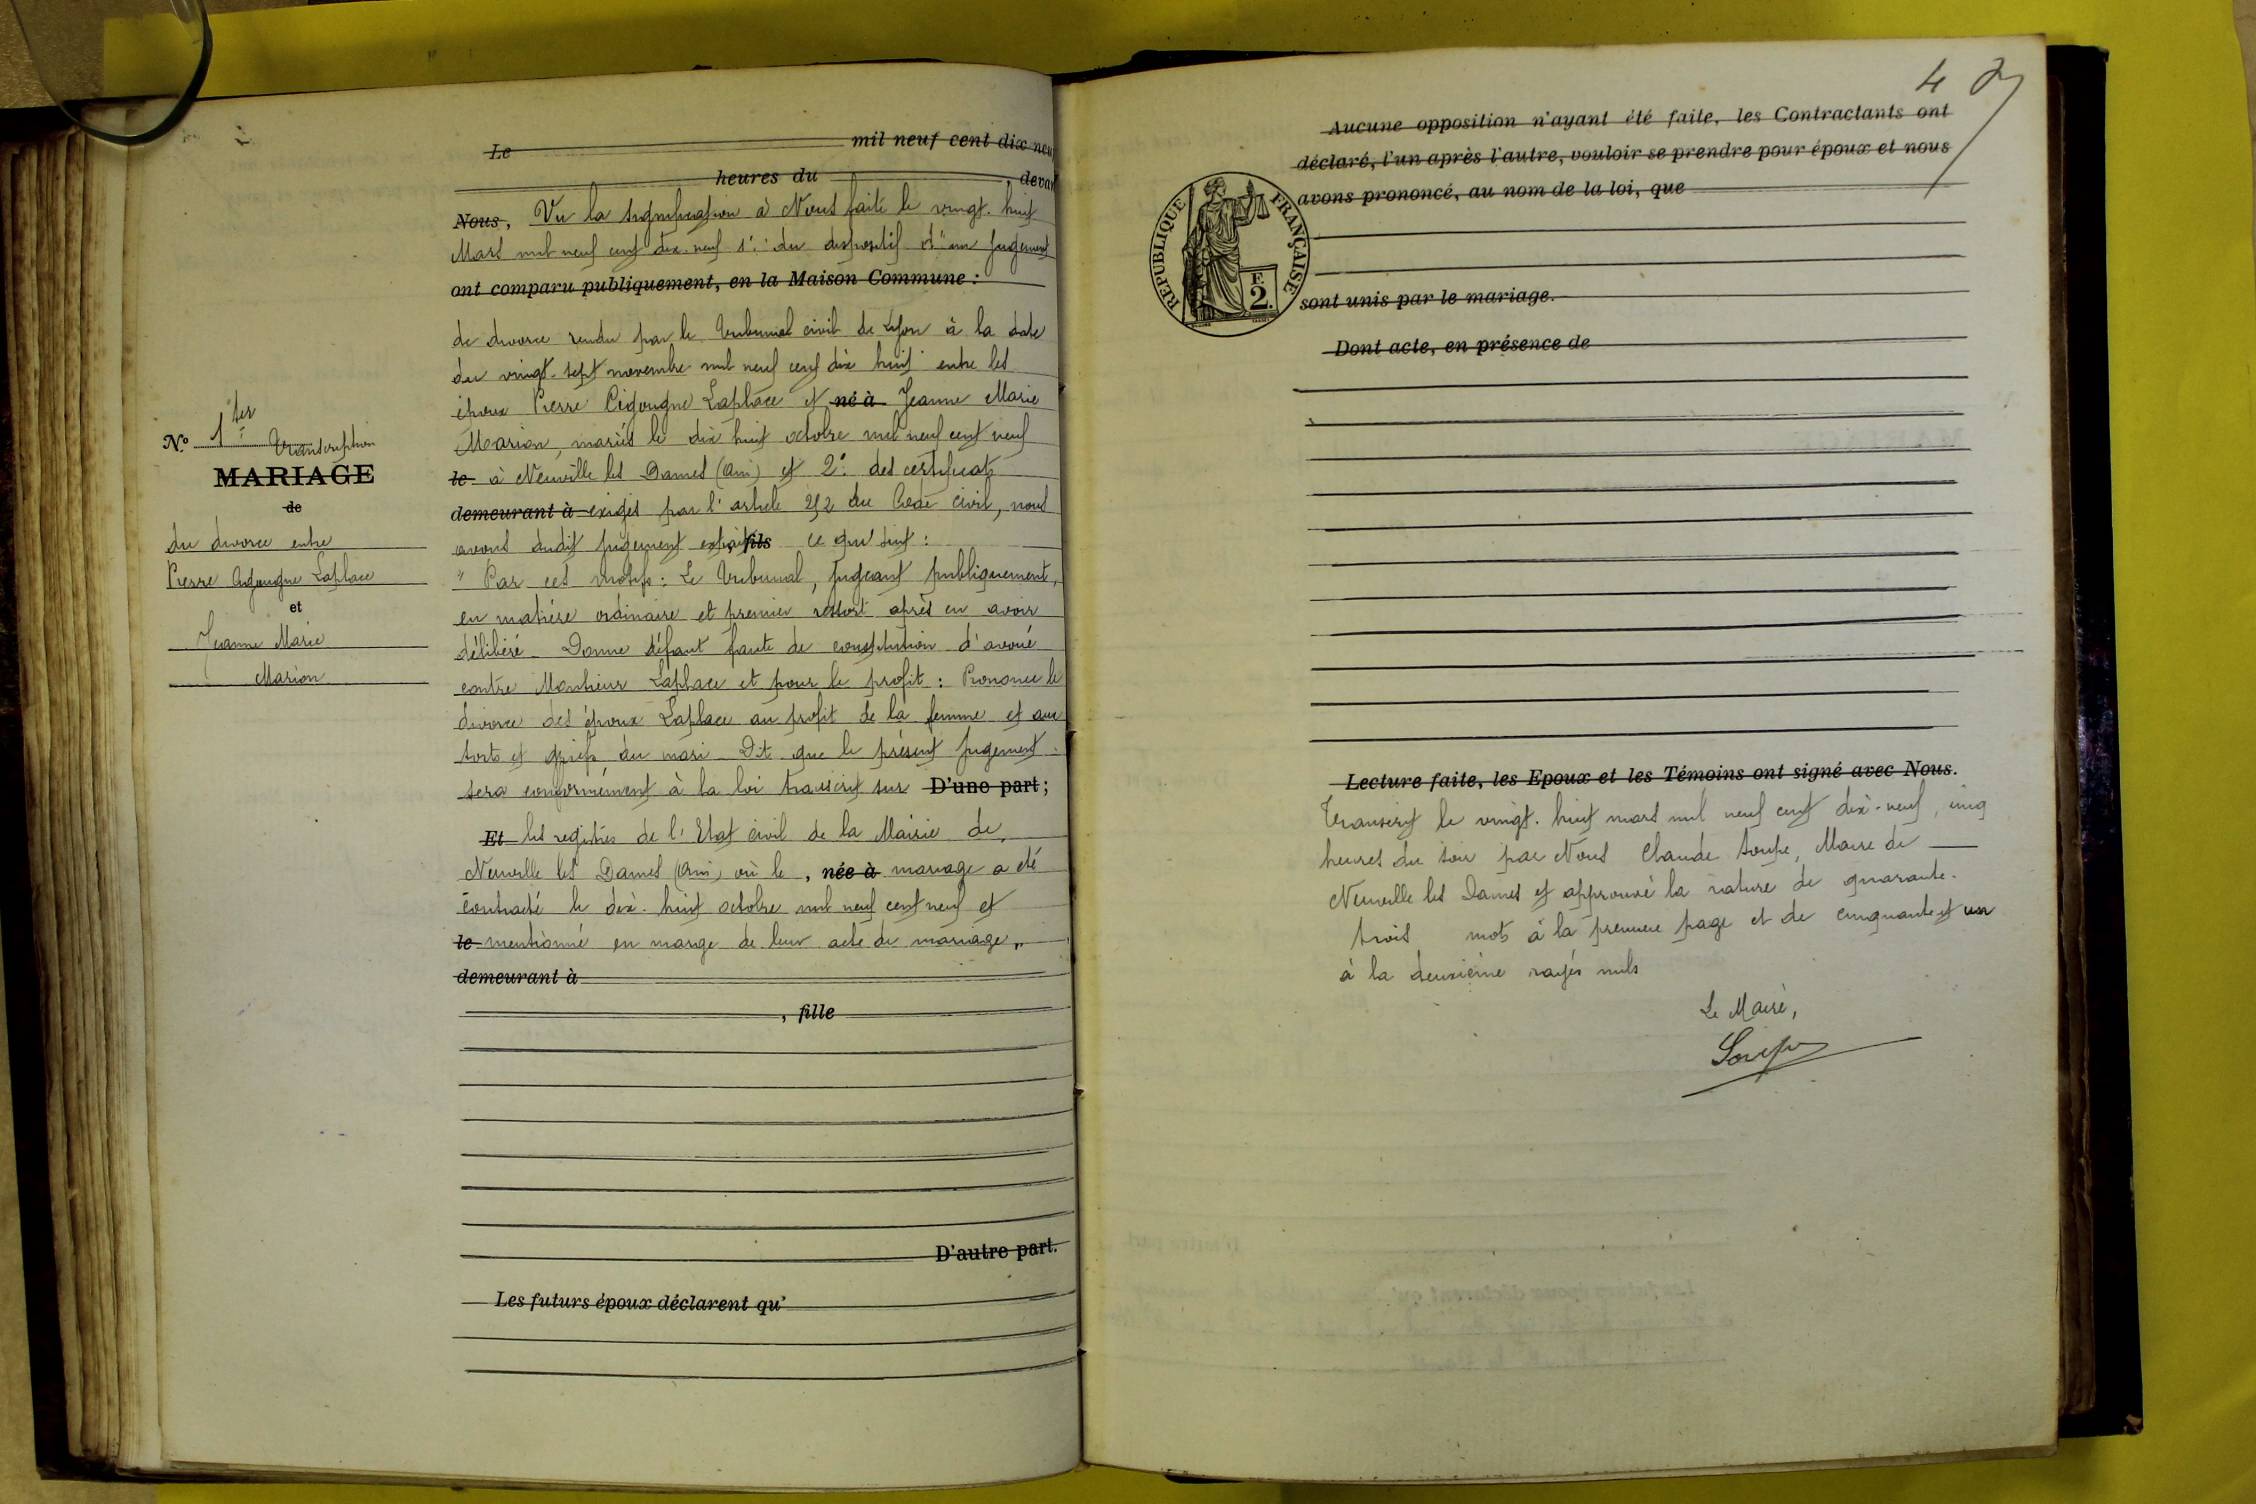 N° 1ter
Transcription
MARIAGE
de
du divorce entre
Pierre Cigougne Laplace
et
Jeanne Marie
Marion
Le mil neuf cent dix neu
heures du , deva
Nous, Vu la signification à Nous faite le vingt-huit
Mars mil neuf cent dix-neuf 1° du dispositif d'un jugement
ont comparu publiquement, en la Maison Commune :
de divorce rendu par le Tribunal civil de Lyon à la date
du vingt-sept novembre mil neuf cent dix huit entre les
époux Pierre Cigougne Laplace et né à Jeanne Marie
Marion, mariés le dix huit octobre mil neuf cent neuf
le à Neuville les Dames (Ain) et 2° des certificats
demeurant à exigés par l'article 252 du Code civil, nous
avons dudit jugement extrait fils ce qui suit :
" Par ces motifs : Le Tribunal, jugeant publiquement,
en matière ordinaire et premier ressort après en avoir
délibéré _ Donne défaut faute de constitution d'avoué
contre Monsieur Laplace et pour le profit : Prononce le
divorce des époux Laplace au profit de la femme et aux
torts et griefs du mari _ Dit que le présent jugement
sera conformément à la loi transcrit sur D'une part ;
Et les registres de l'Etat civil de la Mairie de
Neuville les Dames (Ain) où le , née à mariage a été
contracté le dix-huit octobre mil neuf cent neuf et
le mentionné en marge de leur acte de mariage "
demeurant à
, fille
D'autre part.
Les futurs époux déclarent qu'
4
Aucune opposition n'ayant été faite, les Contractants ont
déclaré, l'un après l'autre, vouloir se prendre pour époux et nous
avons prononcé, au nom de la loi, que
RÉPUBLIQUE FRANÇAISE
F.
2.
sont unis par le mariage.
Dont acte, en présence de
Lecture faite, les Epoux et les Témoins ont signé avec Nous.
Transcrit le vingt-huit mars mil neuf cent dix-neuf, cinq
heures du soir par Nous Claude Soupe, Maire de
Neuville les Dames et approuvé la rature de quarante-
trois mots à la première page et de cinquante et un
à la deuxième rayés nuls
Le Maire,
Soupe